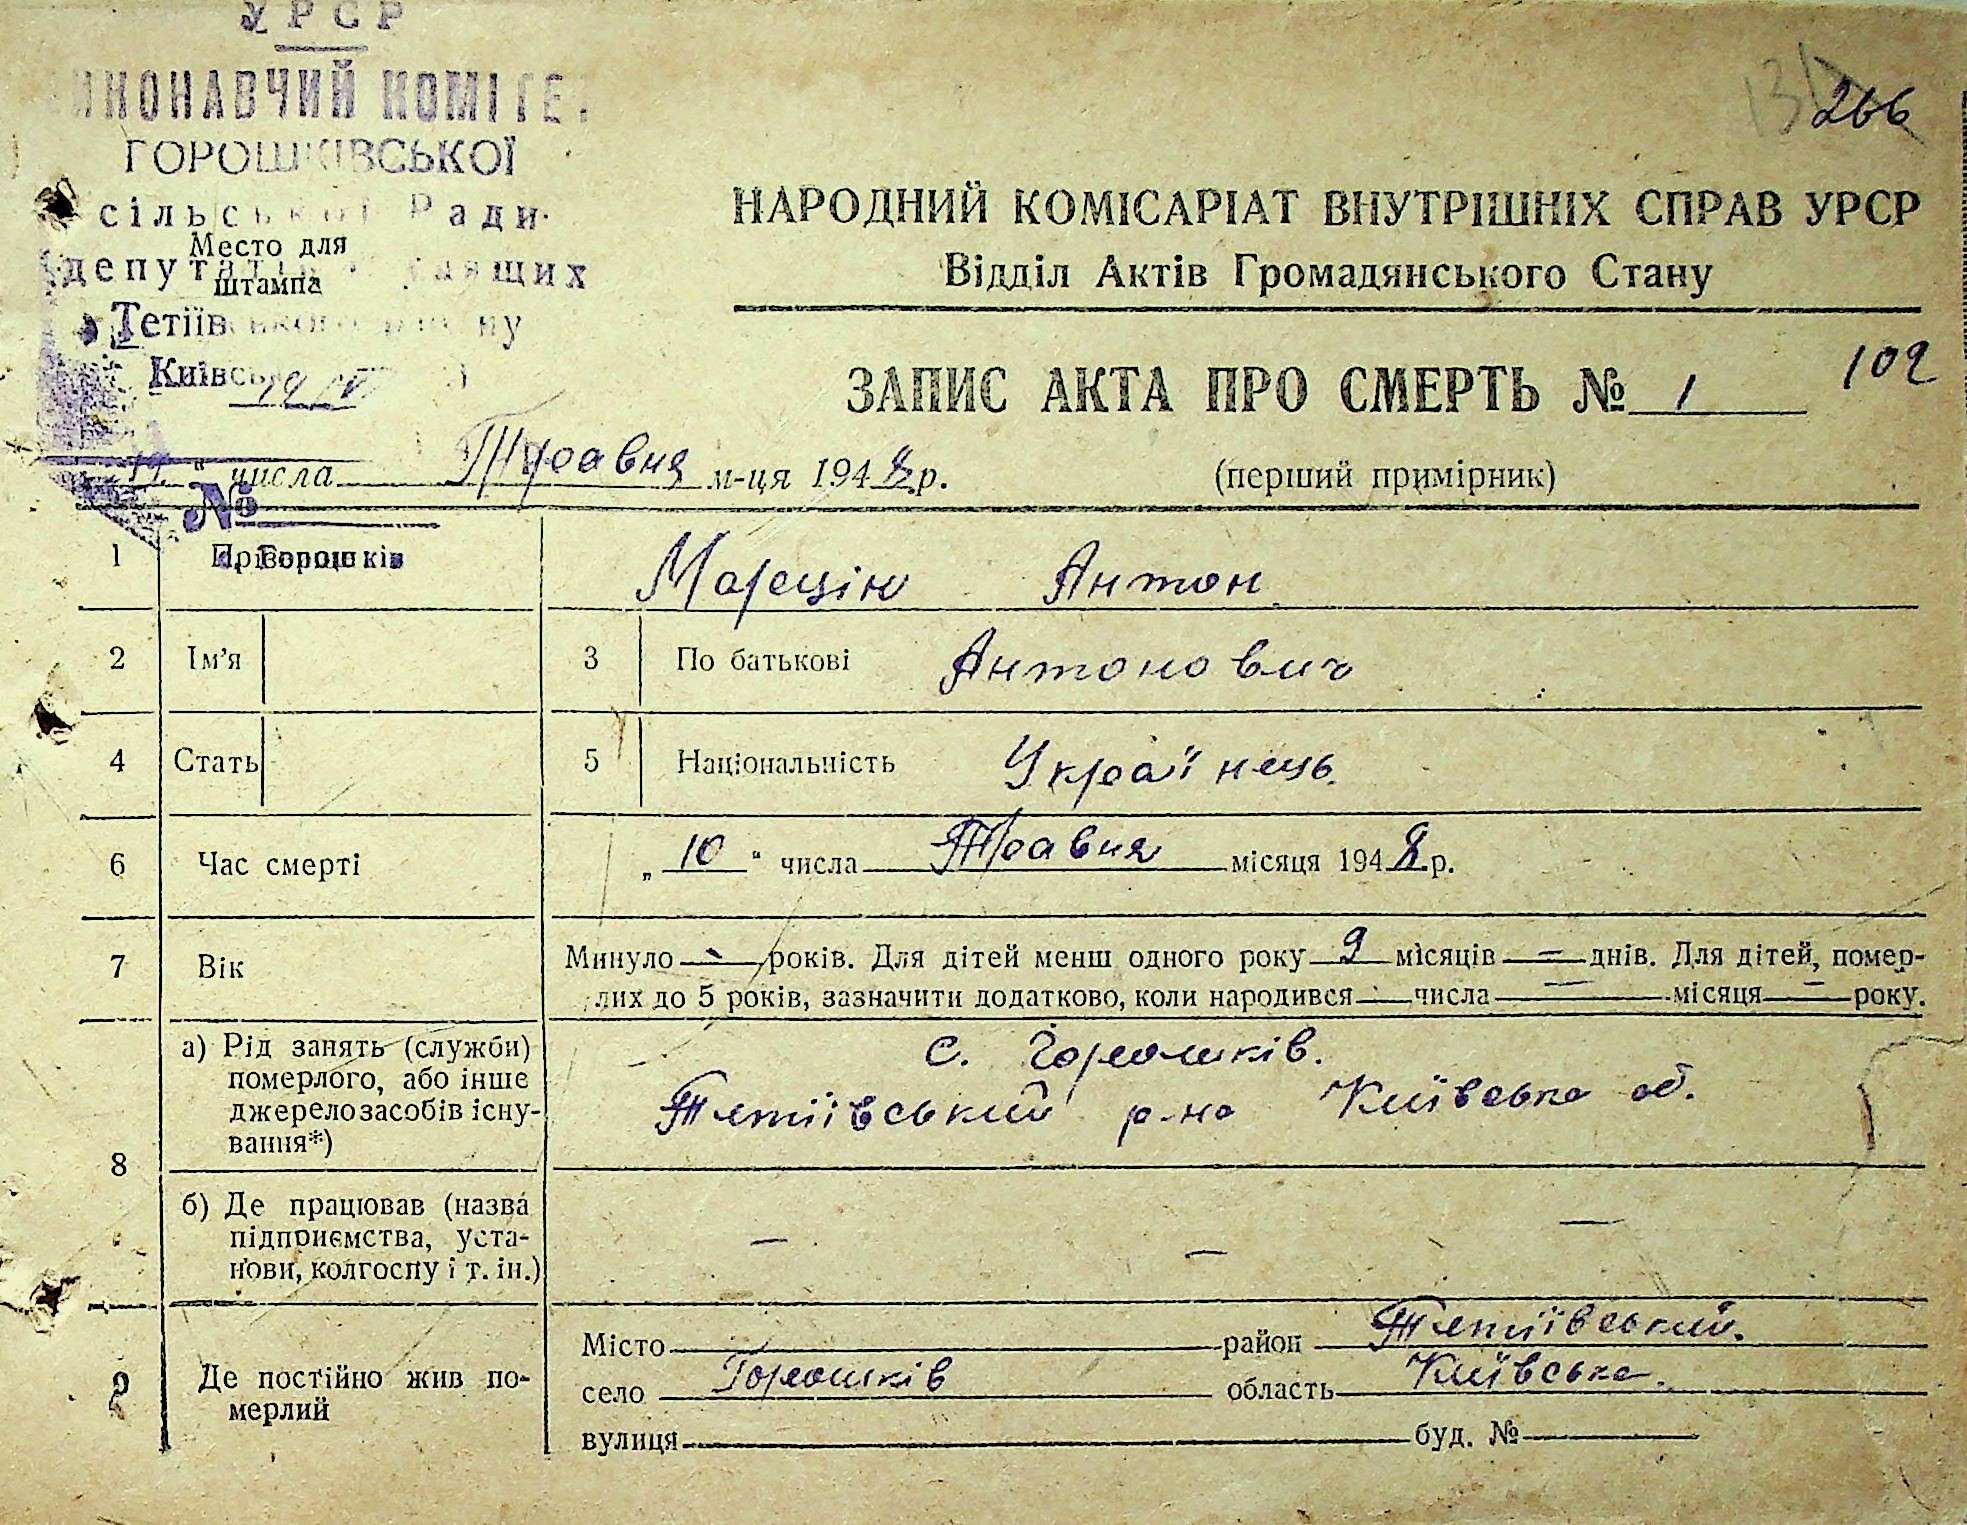 УРСР
ГОРОШКІВСЬКОЇ
сільської Ради
Место для
штампа
266
НАРОДНИЙ КОМІСАРІАТ ВНУТРІШНІХ СПРАВ УРСР
Відділ Актів Громадянського Стану
ЗАПИС АКТА ПРО СМЕРТЬ № 1
102
числа Травня м-ця 1948 р.
(перший примірник)
№
1 Прізвище
Антон
2 Ім'я 3 По батькові Антонович
4 Стать 5 Національність Українець.
6 Час смерті „10“ числа Травня місяця 1948 р.
7 Вік Минуло — років. Для дітей менш одного року 9 місяців — днів. Для дітей, помер-
лих до 5 років, зазначити додатково, коли народився — числа — місяця — року.
8 а) Рід занять (служби)
померлого, або інше
джерело засобів існу-
вання*)
с. Горошків.
Тетіївський р-на Київська об.
б) Де працював (назва
підприємства, уста-
нови, колгоспу і т. ін.)
— — —
Де постійно жив по-
мерлий
Місто район Тетіївський.
село Горошків область Київська.
вулиця буд. №